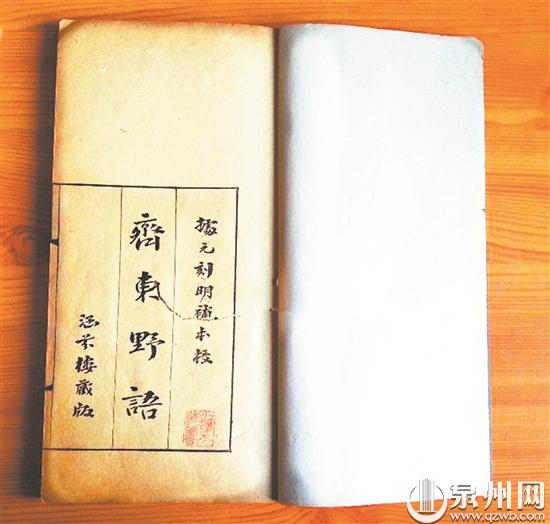 據元刻明補本校
齊東野語
涵芬樓藏版
泉州网
www.qzwb.com